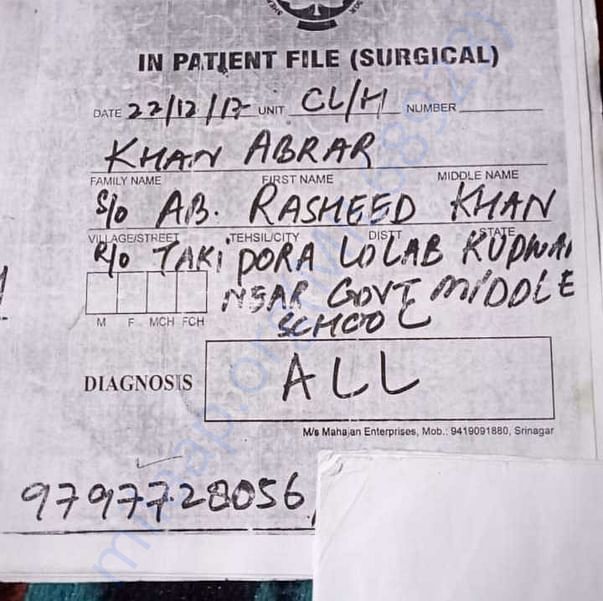 IN PATIENT FILE (SURGICAL)
DATE 22/12/17 UNIT CL/H NUMBER
KHAN ABRAR
FAMILY NAME FIRST NAME MIDDLE NAME
S/o AB. RASHEED KHAN
VILLAGE/STREET TEHSIL/CITY DISTT STATE
R/o TAKI PORA LOLAB KUPWAI
NEAR GOVT MIDDLE
SCHOOL
M F MCH FCH
DIAGNOSIS ALL
M/s Mahajan Enterprises, Mob.: 9419091880, Srinagar
9797728056